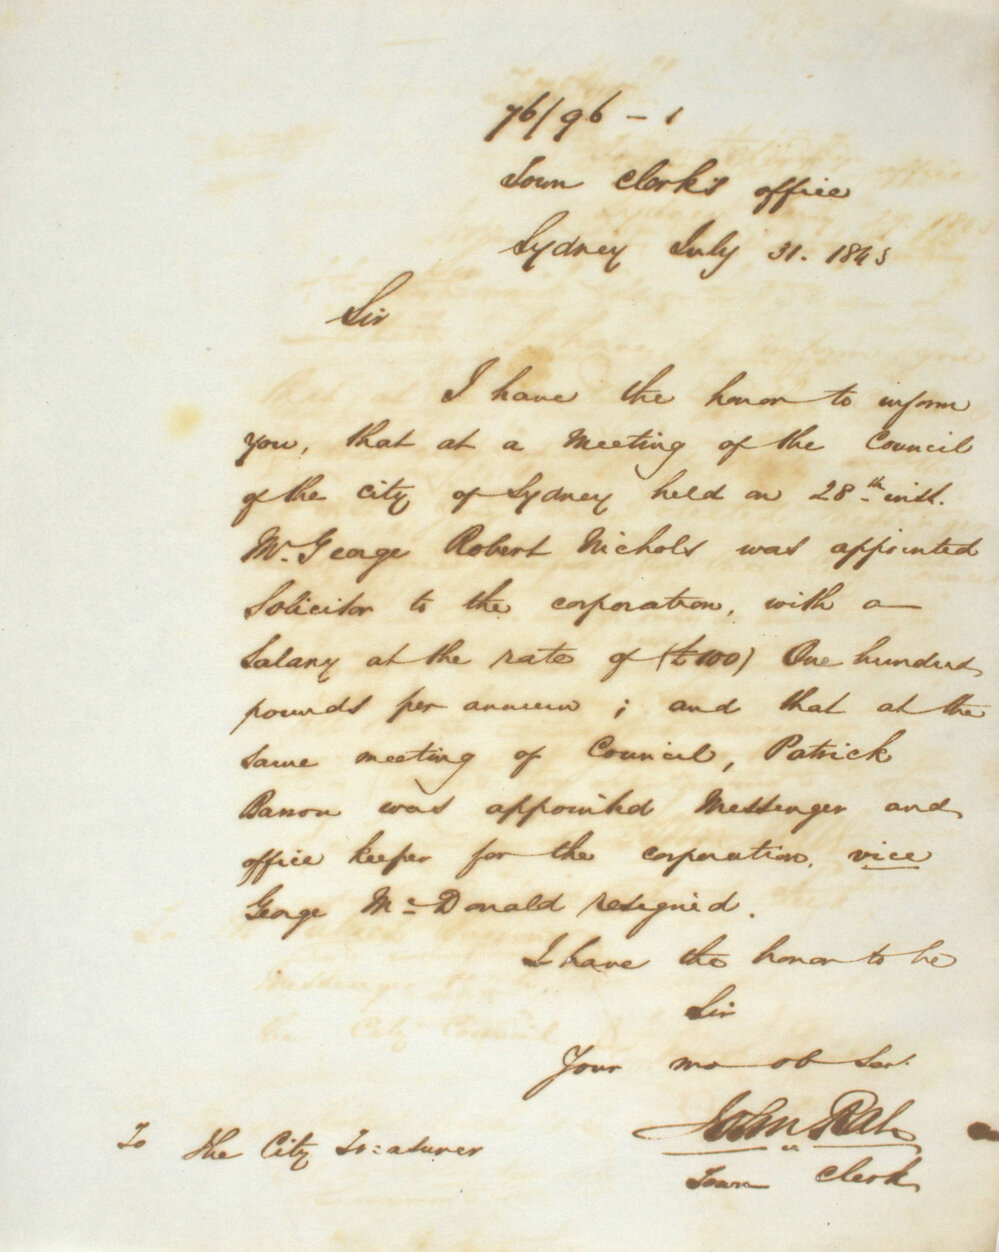 76/96 - 1
Town Clerk's office
Sydney July 31. 1843
Sir
I have the honor to inform
you, that at a Meeting of the Council
of the City of Sydney held on 28th inst.
Mr. George Robert Nichols was appointed
Solicitor to the corporation, with a
Salary at the rate of (£100) One hundred
pounds per annum ; and that at the
same meeting of Council, Patrick
Barron was appointed Messenger and
office keeper for the corporation, vice
George Mc Donald resigned.
I have the honor to be
Sir
Your mo ob Ser.
John Rae
Town Clerk
To The City Treasurer